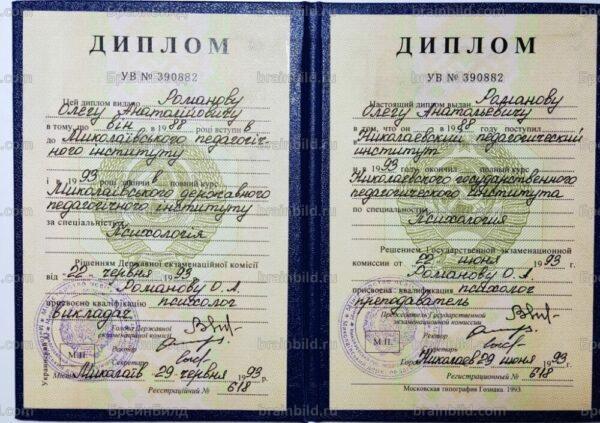 ДИПЛОМ
УВ № 390882
Цей диплом видано Романову
Олегу Анатолійовичу
в тому, що він в 1988 році вступив
до Миколаївського педагогіч-
ного інституту
1993 році закінчив повний курс
Миколаївського державного
педагогічного інституту
за спеціальністю
Психологія
Рішенням Державної екзаменаційної комісії
від 22 червня 1993
Романову О. А.
присвоєно кваліфікацію психолог
викладач
Голова Державної
екзаменаційної комісії
Ректор
Секретар
М.П.
Миколаїв 29 червня 1993 г.
Реєстраційний № 618
ДИПЛОМ
УВ № 390882
Настоящий диплом выдан Романову
Олегу Анатольевичу
в том, что он в 1988 году поступил
в Николаевский педагогический
институт
1993 году окончил полный курс
Николаевского государственного
педагогического института
по специальности
Психология
Решением Государственной экзаменационной
комиссии от 22 июня 1993 г.
Романову О. А.
присвоена квалификация психолог
преподаватель
Председатель Государственной
экзаменационной комиссии
Ректор
Секретарь
М.П.
Город Николаев 29 июня 1993 г.
Регистрационный № 618
Московская типография Гознака. 1993.
БреинБилд
brainbild.ru